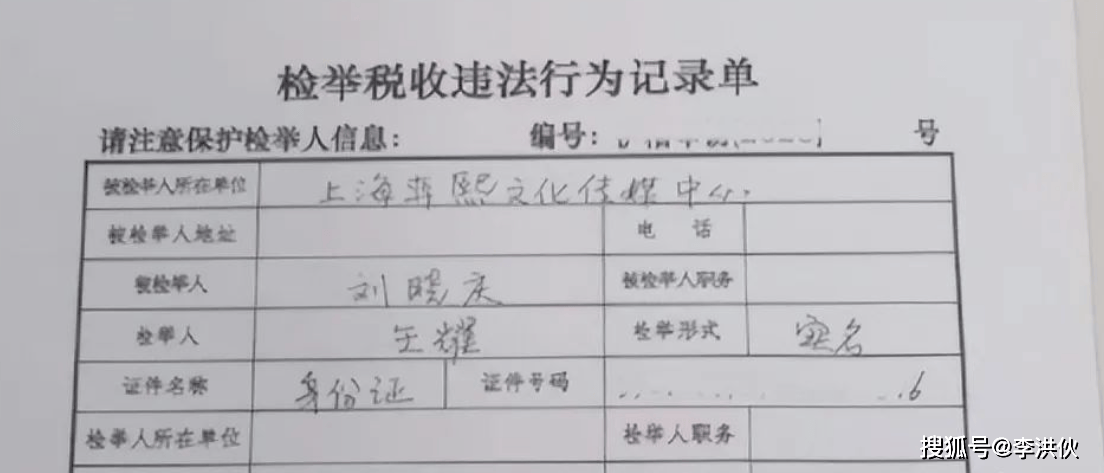 检举税收违法行为记录单
请注意保护检举人信息： 编号： 号
被检举人所在单位 上海 熙文化传媒中心
被检举人地址 电 话
被检举人 刘晓庆 被检举人职务
检举人 王耀 检举形式 实名
证件名称 身份证 证件号码 6
检举人所在单位 检举人职务
搜狐号@李洪伙